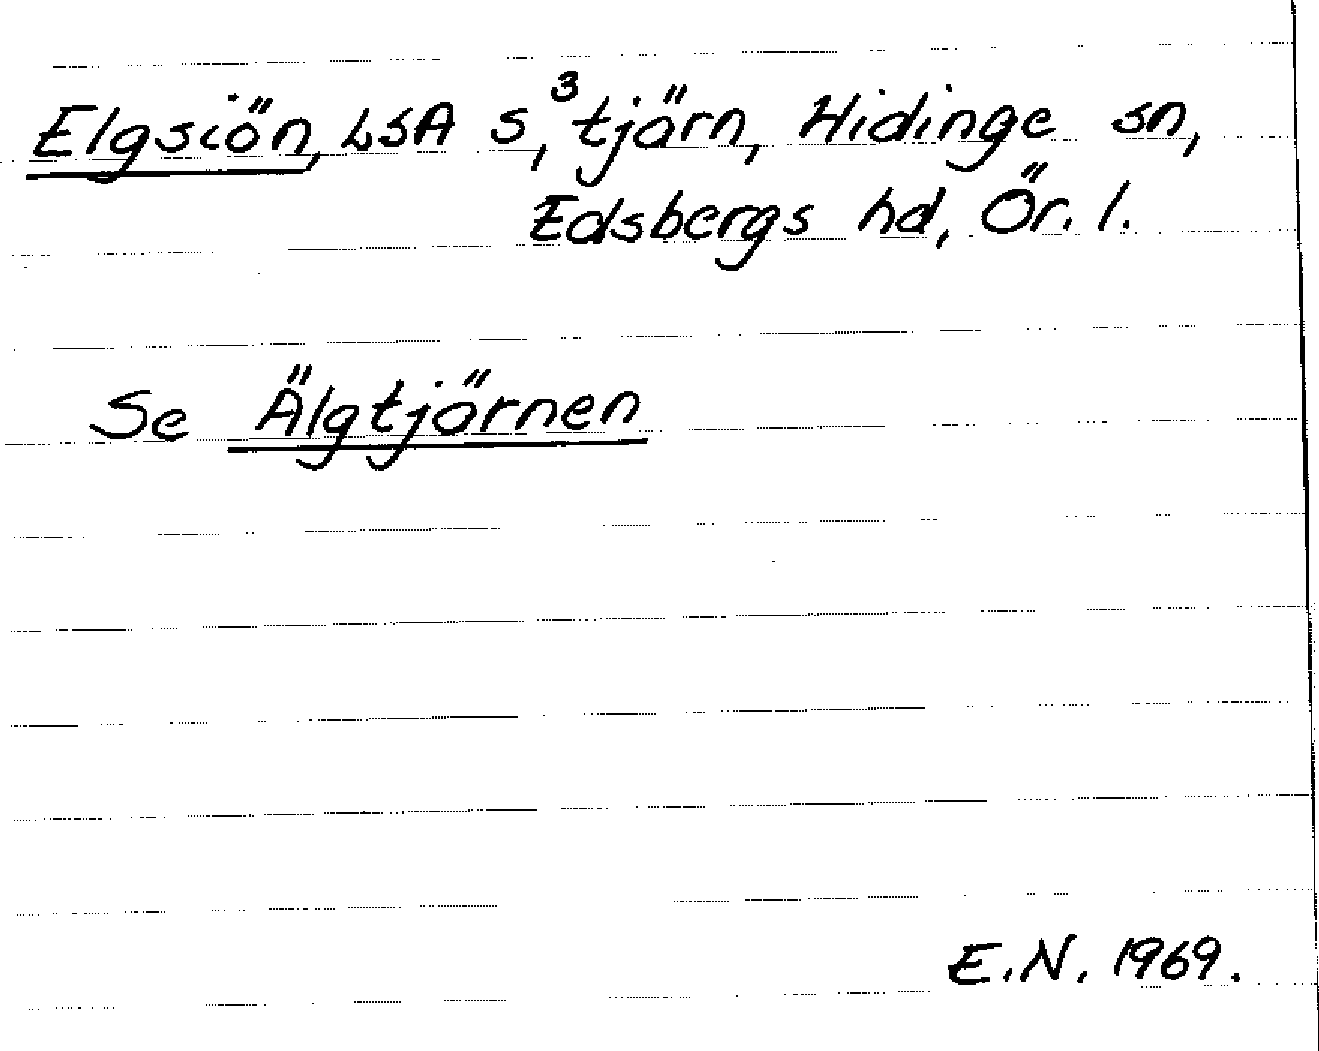 Elgsiön, LSA s, 3 tjärn, Hidinge sn,
Edsbergs hd, Ör. l.
Se Älgtjörnen
E.N. 1969.